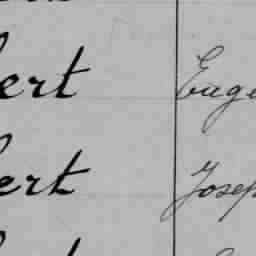 ert Euge
ert Josep